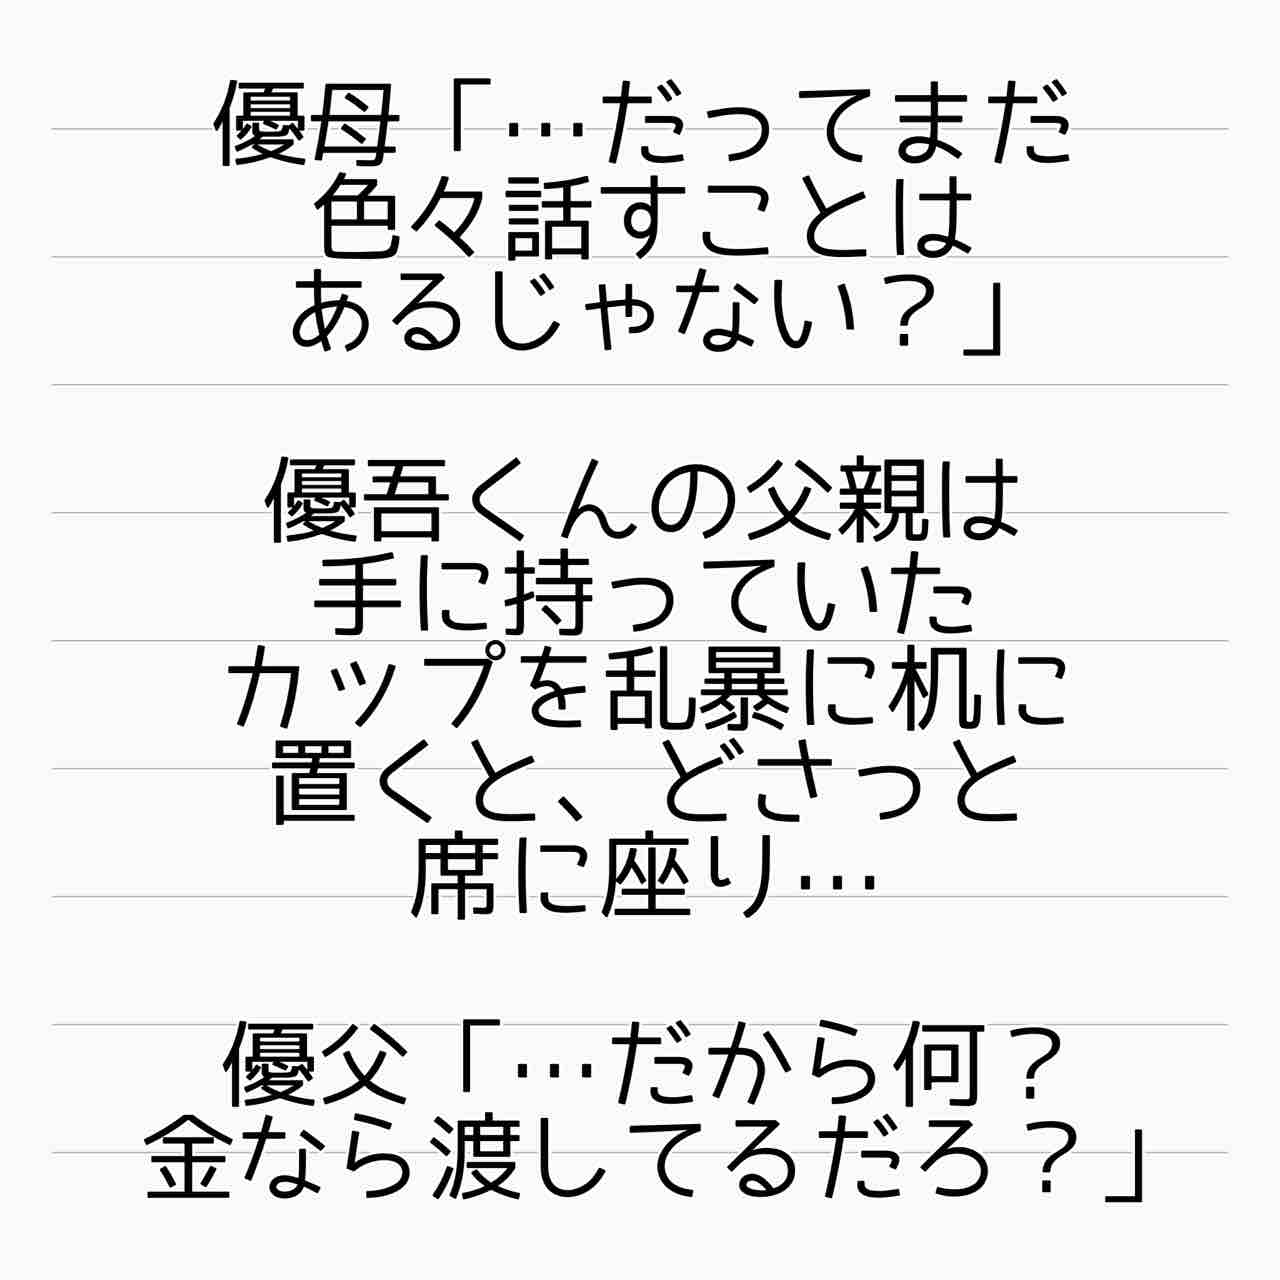 優母「…だってまだ
色々話すことは
あるじゃない？」
優吾くんの父親は
手に持っていた
カップを乱暴に机に
置くと、どさっと
席に座り…
優父「…だから何？
金なら渡してるだろ？」